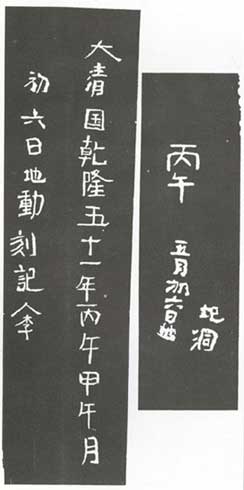 丙午
五月初六日地
地洞
大清国乾隆五十一年丙午甲午月
初六日地動刻記李